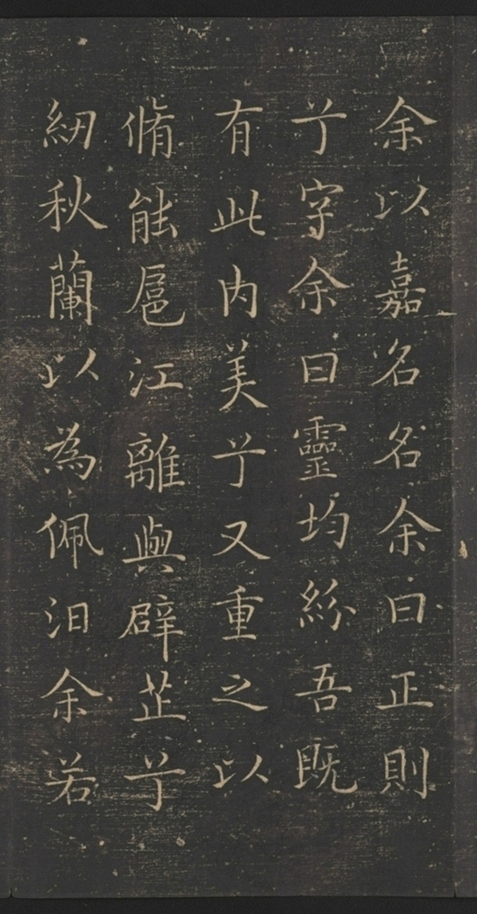 余以嘉名名余曰正則
兮字余曰靈均紛吾既
有此内美兮又重之以
脩能扈江離與辟芷兮
紉秋蘭以為佩汩余若